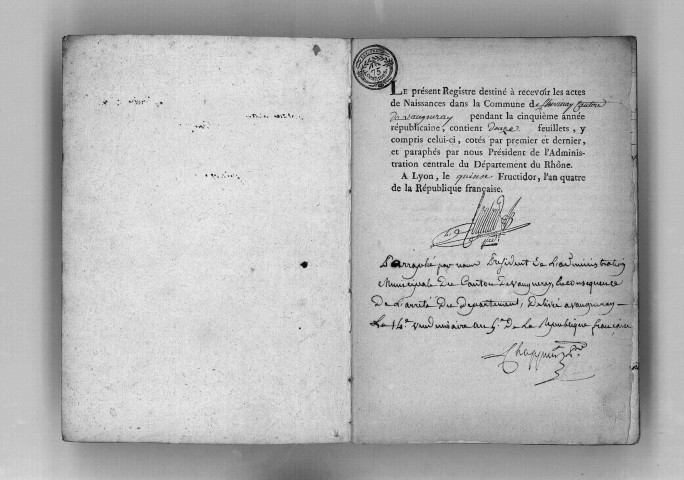 LE présent Registre destiné à recevoir les actes
de Naissances dans la Commune de Thurins Canton
de vaugneray pendant la cinquième année
républicaine, contient douze feuillets, y
compris celui-ci, cotés par premier et dernier,
et paraphés par nous Président de l'Adminis-
tration centrale du Département du Rhône.
A Lyon, le quinze Fructidor, l'an quatre
de la République française.
Parraphé par nous Président de L'administration
Municipale Du Canton De vaugneray, en consequence
De L'arreté Du Département, Délivré a vaugneray
Le 14e vendémiaire an 5e De La République française